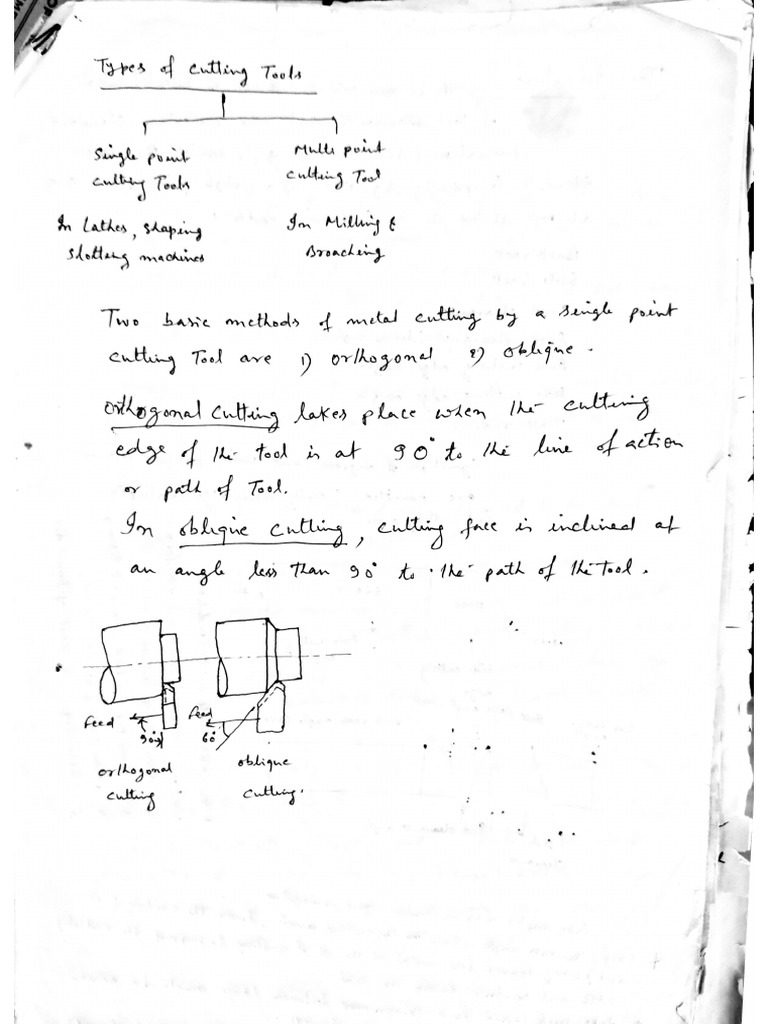 Types of Cutting Tools
Single point
cutting Tools
Multi point
cutting Tool
In Lathes, shaping
slotting machines
In Milling &
Broaching
Two basic methods of metal cutting by a single point
cutting Tool are 1) orthogonal 2) oblique.
Orthogonal cutting takes place when the cutting
edge of the tool is at 90° to the line of action
or path of Tool.
In oblique cutting, cutting face is inclined at
an angle less than 90° to the path of the Tool.
Feed
90°
Feed
60°
orthogonal
cutting
oblique
cutting.